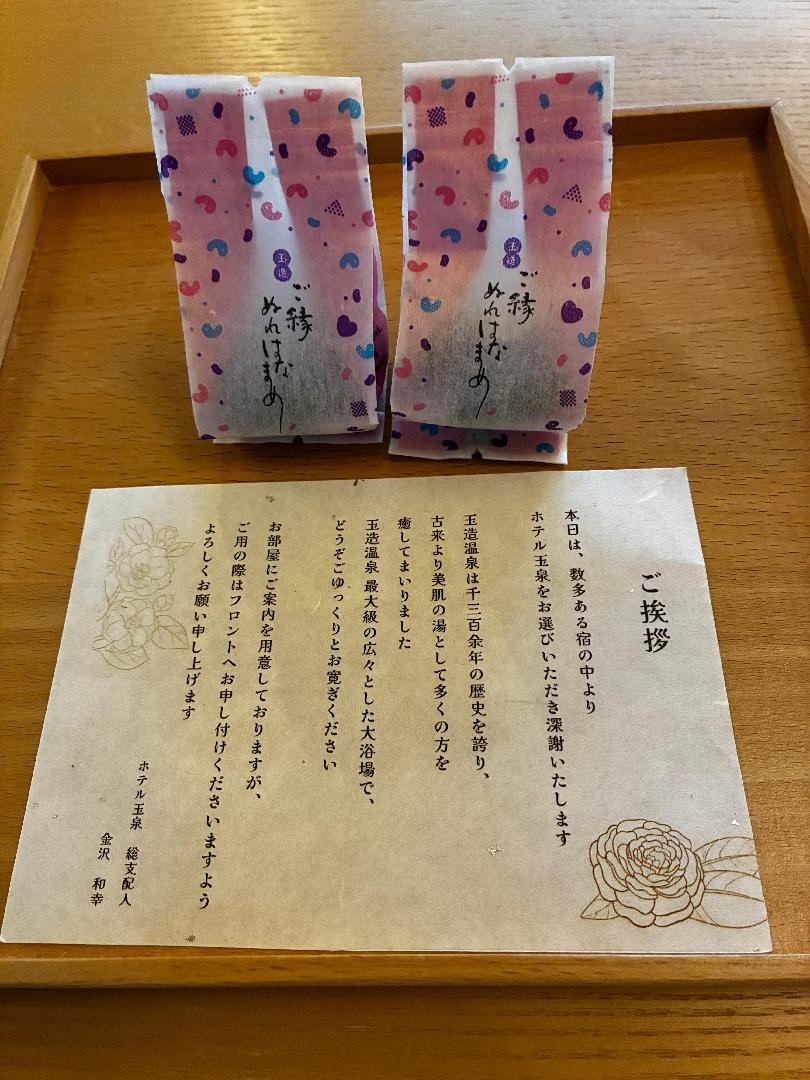 玉造
ご縁
ぬれはなまめ
玉造
ご縁
ぬれはなまめ
ご挨拶
本日は、数多ある宿の中より
ホテル玉泉をお選びいただき深謝いたします
玉造温泉は千三百余年の歴史を誇り、
古来より美肌の湯として多くの方を
癒してまいりました
玉造温泉 最大級の広々とした大浴場で、
どうぞごゆっくりとお寛ぎください
お部屋にご案内を用意しておりますが、
ご用の際はフロントへお申し付けくださいますよう
よろしくお願い申し上げます
ホテル玉泉 総支配人
金沢 和幸